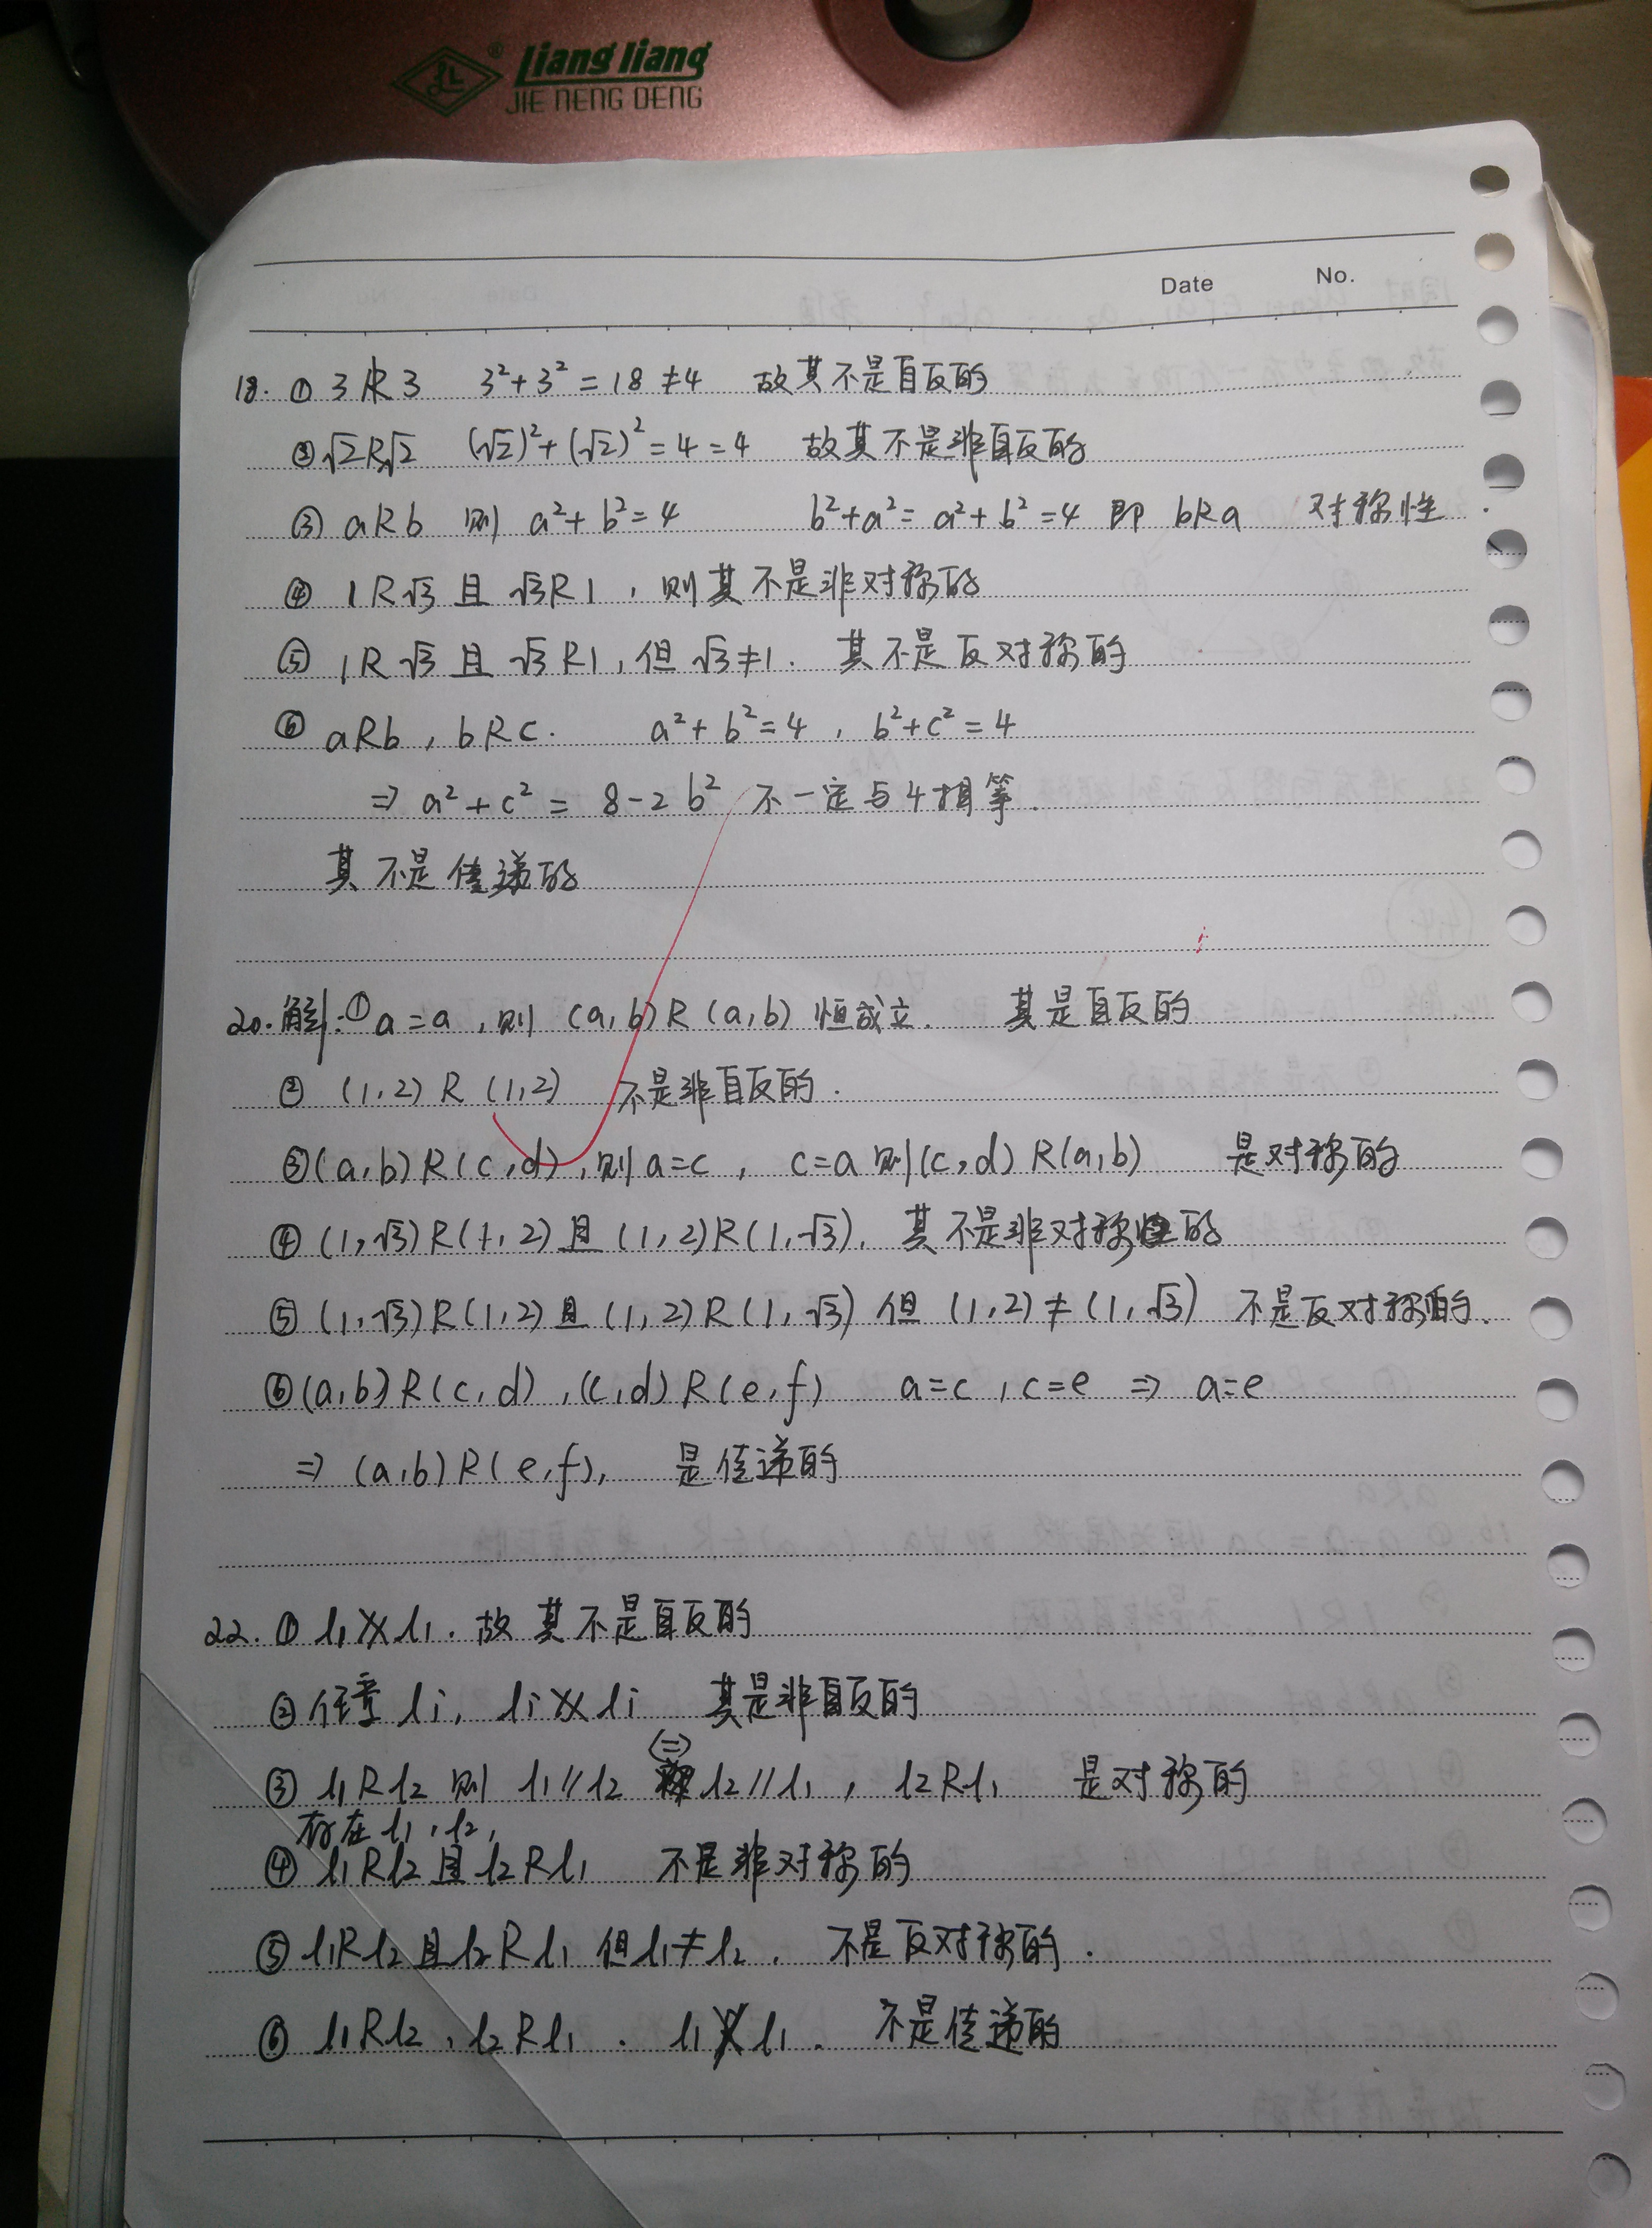 Liang liang
JIE NENG DENG
Date No.
18. ① 3 R̸ 3 3²+3²=18≠4 故其不是自反的
② √2R√2 (√2)²+(√2)²=4=4 故其不是非自反的
③ aRb 则 a²+b²=4 b²+a²=a²+b²=4 即 bRa 对称性
④ 1R√3 且 √3R1, 则其不是非对称的
⑤ 1R√3 且 √3R1, 但 √3≠1. 其不是反对称的
⑥ aRb, bRc. a²+b²=4, b²+c²=4
⇒ a²+c² = 8-2b² 不一定与4相等.
其不是传递的
20. 解: ① a=a, 则 (a,b)R(a,b) 恒成立. 其是自反的
② (1,2) R (1,2) 不是非自反的.
③ (a,b)R(c,d), 则 a=c, c=a 则(c,d)R(a,b) 是对称的
④ (1,√3)R(1,2) 且 (1,2)R(1,√3). 其不是非对称的
⑤ (1,√3)R(1,2) 且 (1,2)R(1,√3) 但 (1,2)≠(1,√3) 不是反对称的.
⑥ (a,b)R(c,d), (c,d)R(e,f) a=c, c=e ⇒ a=e
⇒ (a,b)R(e,f), 是传递的
22. ① l₁∦l₁. 故其不是自反的
② 任意 li, li∦li 其是非自反的
③ l₁Rl₂ 则 l₁//l₂ (=) l₂//l₁, l₂Rl₁ 是对称的
存在 l₁, l₂,
④ l₁Rl₂ 且 l₂Rl₁ 不是非对称的
⑤ l₁Rl₂ 且 l₂Rl₁ 但 l₁≠l₂. 不是反对称的.
⑥ l₁Rl₂, l₂Rl₁. l₁R̸l₁. 不是传递的